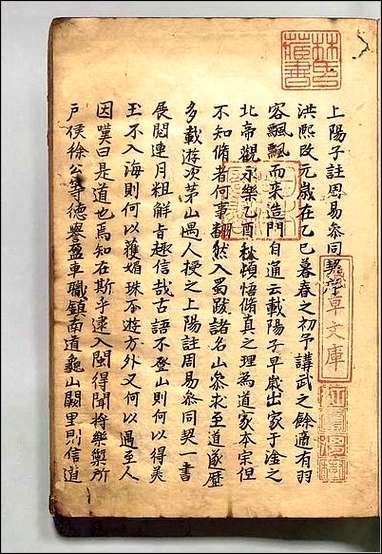 上陽子註周易參同契序
洪熙改元歲在乙巳暮春之初予講武之餘適有羽
客飄飄而來造門自通云載陽子早歲出家于淦之
北帝觀永樂乙酉秋頓悟脩真之理為道家本宗但
不知脩者何事翻然入蜀跋諸名山參求至道遂歷
多載遊次茅山遇人授之上陽註周易參同契一書
展閱連月粗解肯趣信哉古語不登山則何以得美
玉不入海則何以獲媚珠不遊方外又何以遇至人
因嘆曰是道也焉知在斯乎遂入閩得聞將樂禦所
戶侯徐公等德譽盈車職鎮南道龜山闕里則信道
文庫